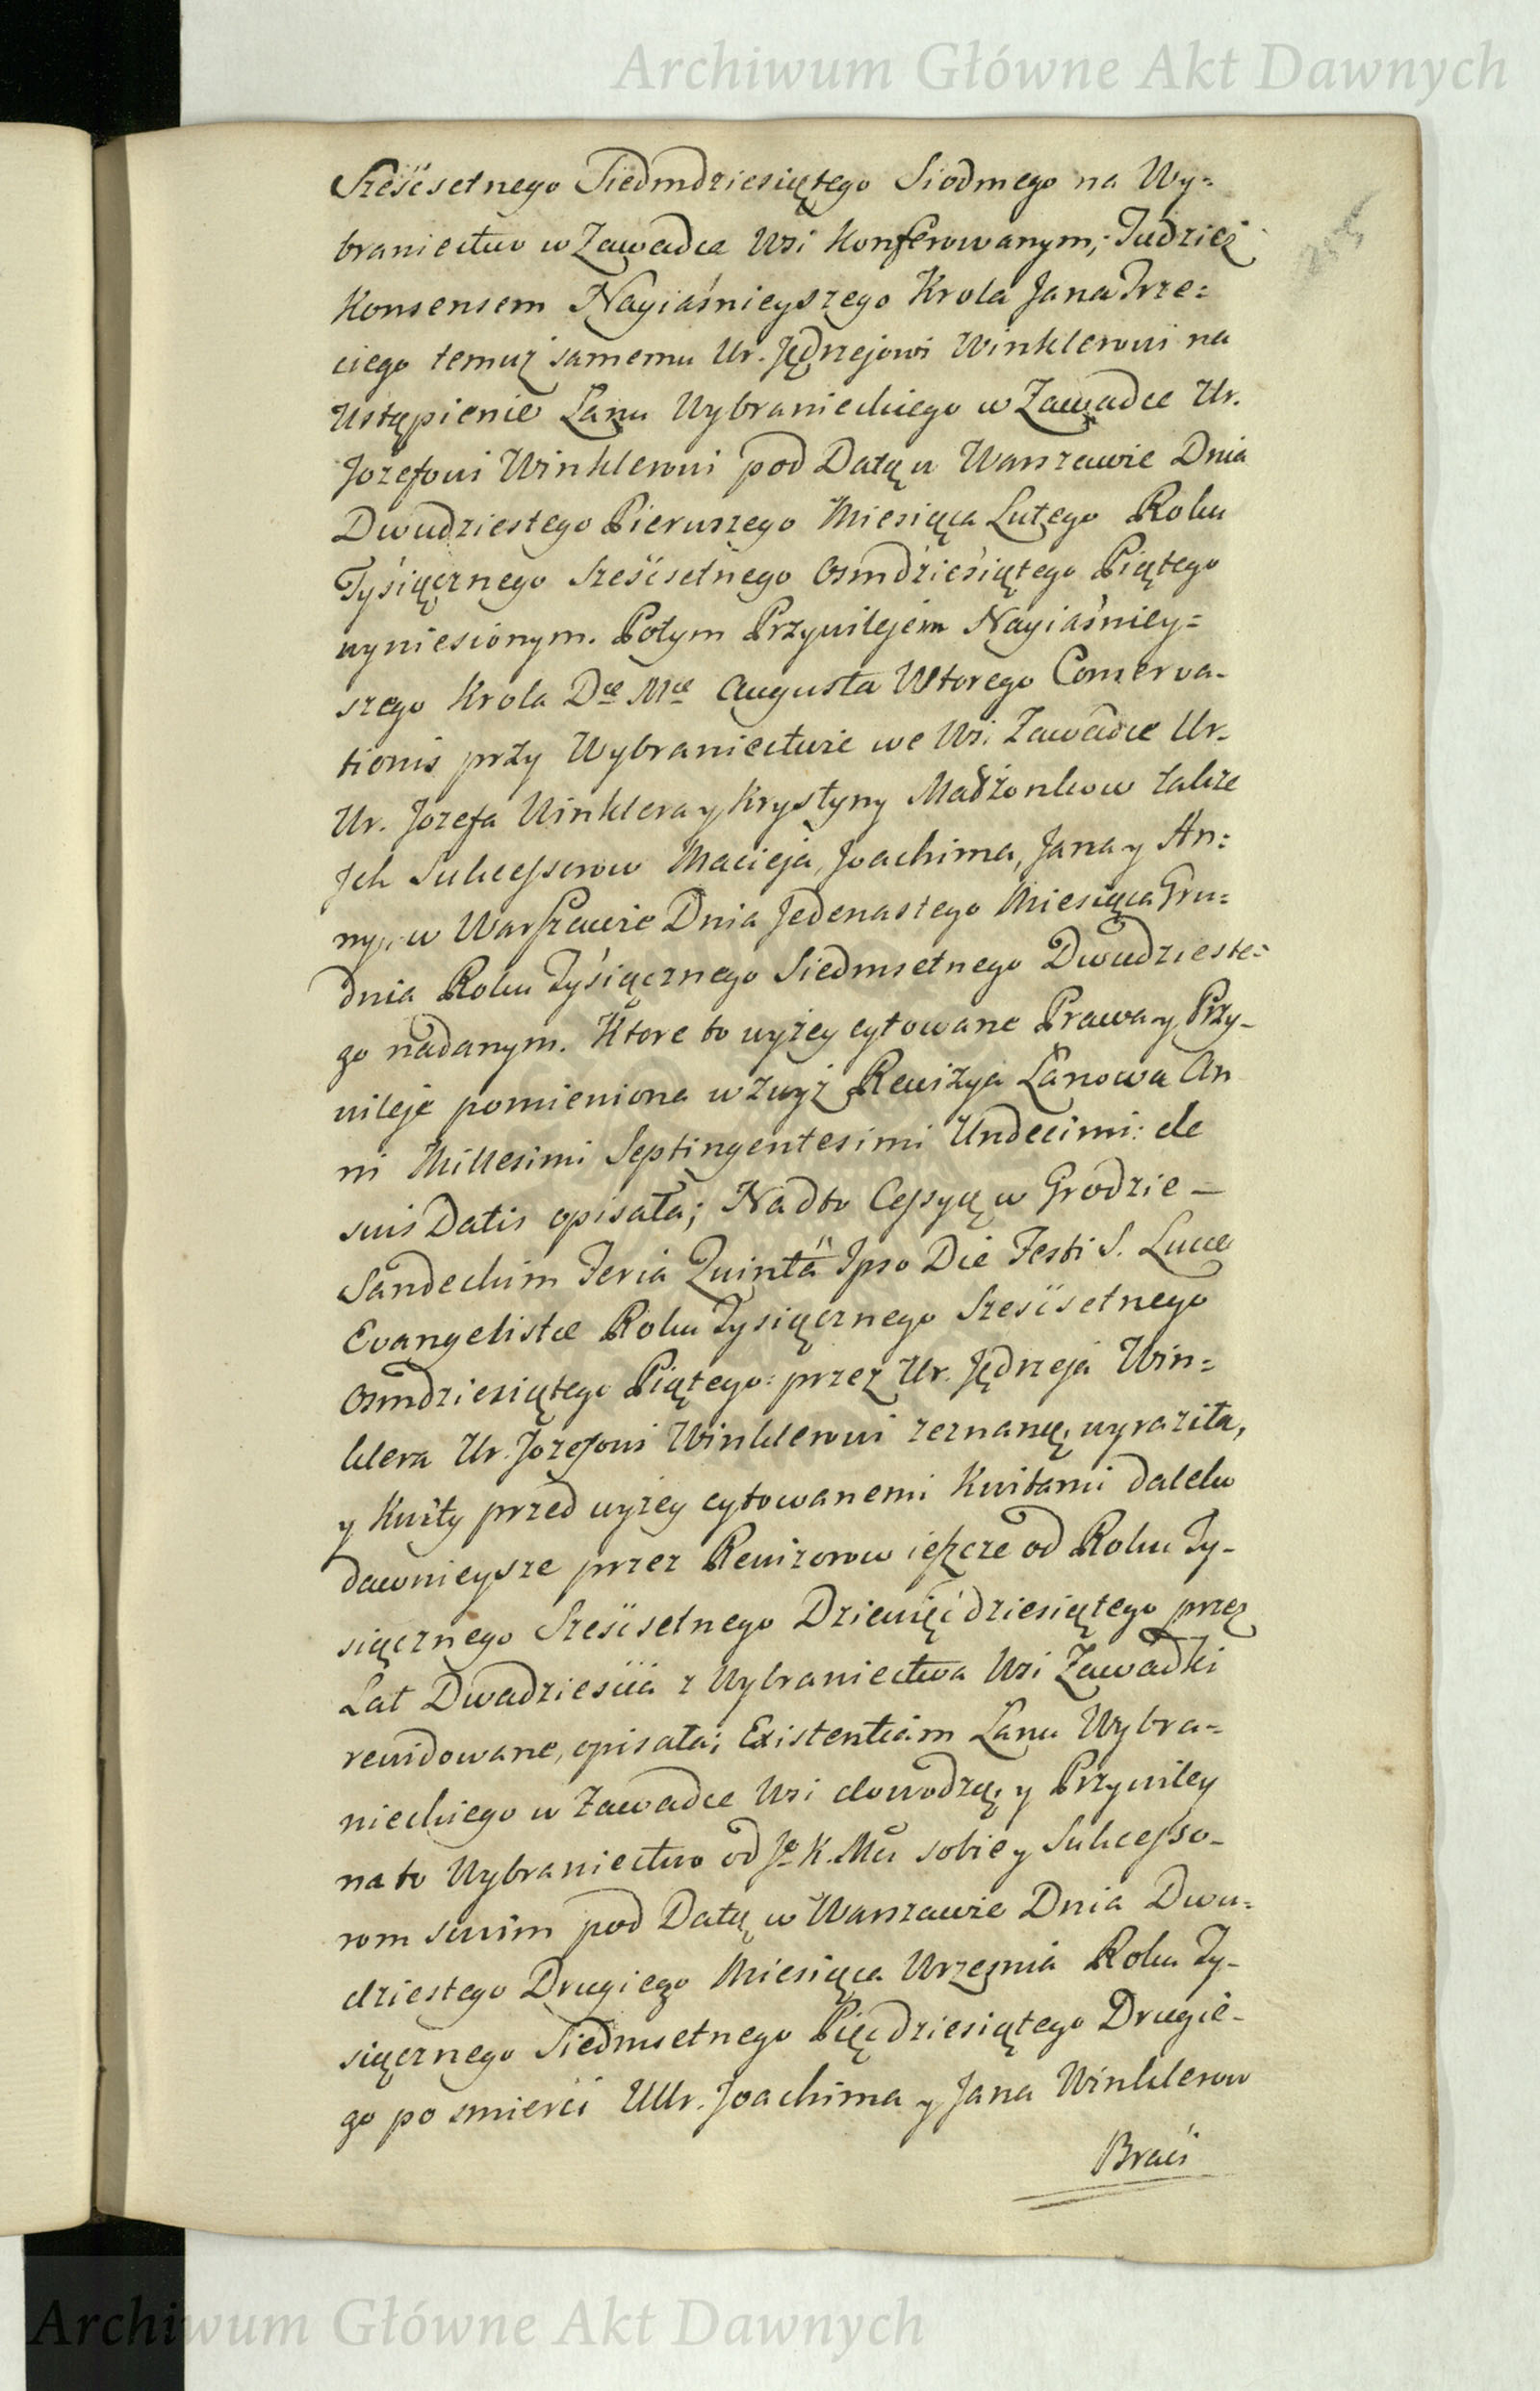 Archiwum Główne Akt Dawnych
Sześćsetnego Siedmdziesiątego Siodmego na Wy=
braniectwo w Zawadce Wsi Konferowanym; Tudzież
Konsensem Nayiaśnieyszego Krola Jana Trze=
ciego temuż samemu Ur. Jędrzejowi Winklerowi na
Ustąpienie Łanu Wybranieckiego w Zawadce Ur.
Jozefowi Winklerowi pod Datą w Warszawie Dnia
Dwudziestego Pierwszego Miesiąca Lutego Roku
Tysiącznego Sześćsetnego Osmdziesiątego Piątego
wyniesionym. Potym Przywilejem Nayiaśniey=
szego Krola Augusta Wtorego Conserva-
tionis przy Wybraniectwie we Wsi Zawadce Ur-
Ur. Jozefa Winklera y Krystyny Małżonkow także
Jch Sukcessorow Macieja, Joachima, Jana y An=
ny, w Warszawie Dnia Jedenastego Miesiąca Gru=
dnia Roku Tysiącznego Siedmsetnego Dwudzieste=
go nadanym. Ktore to wyżey cytowane Prawa y Przy-
wileje pomieniona wzwyż Rewizya Łanowa An
ni Millesimi Septingentesimi Undecimi: de
suis Datis opisała; Nadto Cessyą w Grodzie —
Sandeckim Feria Quinta Ipso Die Festi S. Lucæ
Evangelistæ Roku Tysiącznego Sześćsetnego
Osmdziesiątego Piątego: przez Ur. Jędrzeja Win=
klera Ur. Jozefowi Winklerowi zeznaną, wyraziła,
y Kwity przed wyżey cytowanemi Kwitami daleko
dawnieysze przez Rewizorow ieszcze od Roku Ty-
siącznego Sześćsetnego Dziewięćdziesiątego przez
Lat Dwadzieścia z Wybraniectwa Wsi Zawadki
rewidowane, opisała; Existentiam Łanu Wybra=
nieckiego w Zawadce Wsi dowodzą; y Przywiley
na to Wybraniectwo od K. Mci sobie y Sukcesso-
rom swoim pod Datą w Warszawie Dnia Dwu=
dziestego Drugiego Miesiąca Września Roku Ty-
siącznego Siedmsetnego Pięćdziesiątego Drugie-
go po smierci UUr. Joachima y Jana Winklerow
Braci
Archiwum Główne Akt Dawnych